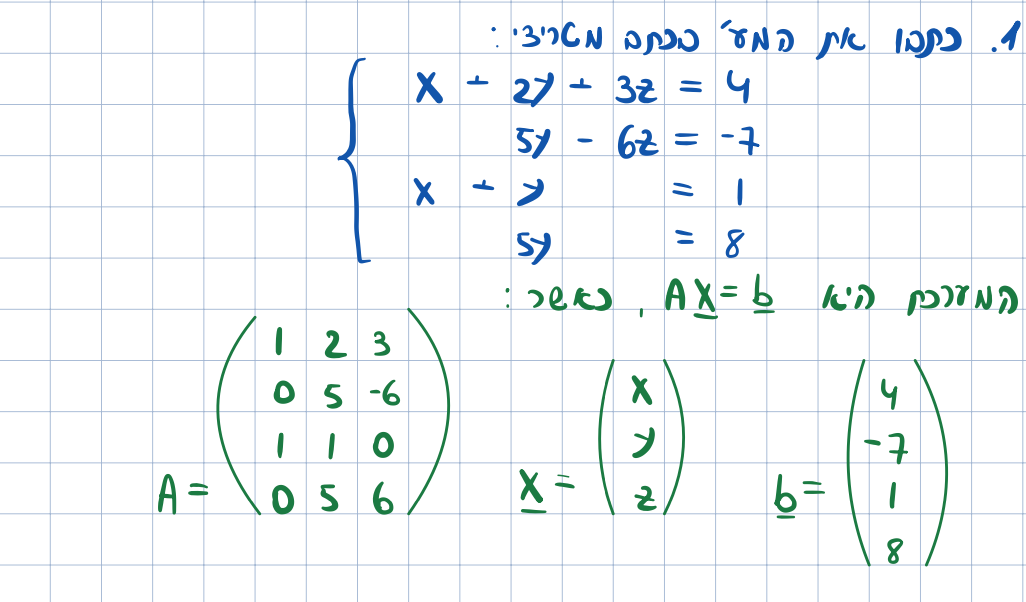 1. כתבו את המע' בכתב מטריצי:
x + 2y + 3z = 4
5y - 6z = -7
x + y = 1
5y = 8
המערכת היא Ax = b, כאשר:
A = ( 1 2 3
0 5 -6
1 1 0
0 5 6 )
x = ( x
y
z )
b = ( 4
-7
1
8 )